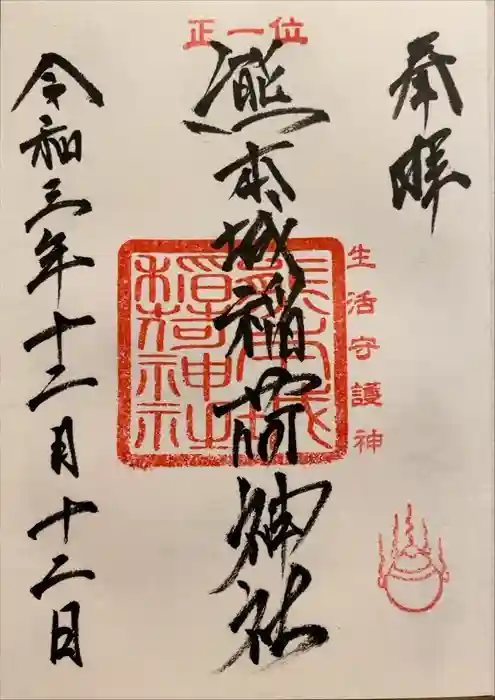 奉拝
正一位
熊本城稲荷神社
生活守護神
令和三年十二月十二日